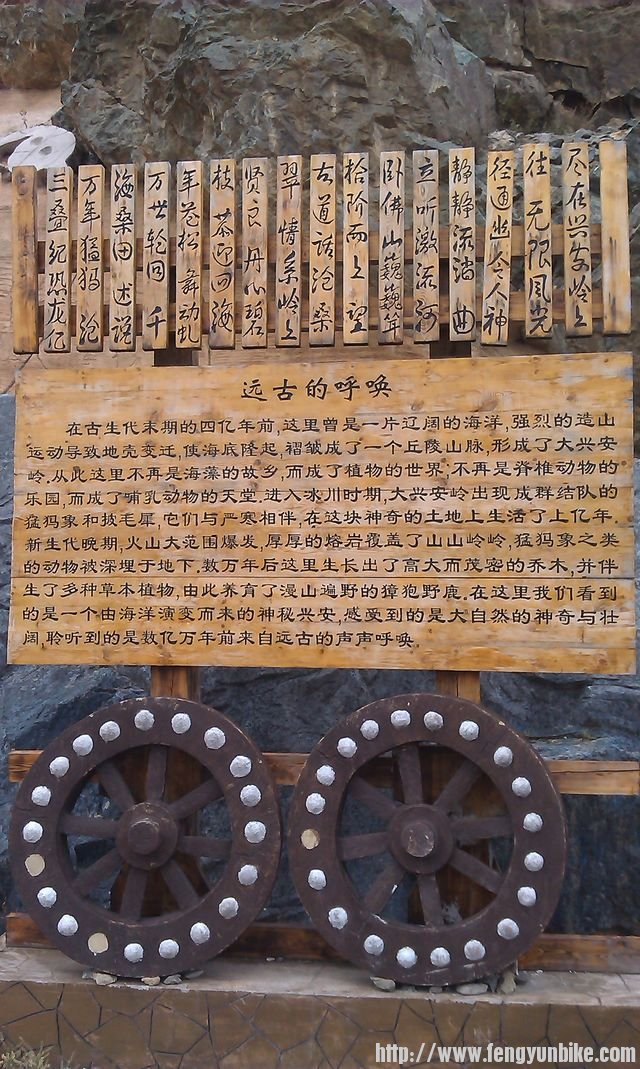 三叠纪恐龙亿
万年猛犸沧
海桑田 述说
万世轮回 千
年苍松 舞动虬
枝 恭迎四海
贤良 丹心碧
翠 情系岭上
古道话沧桑
拾阶而上望
卧佛山巍巍耸
立听激流河
静静流淌 曲
径通幽令人神
往 无限风光
尽在兴安岭上
远古的呼唤
在古生代末期的四亿年前,这里曾是一片辽阔的海洋,强烈的造山
运动导致地壳变迁,使海底隆起,褶皱成了一个丘陵山脉,形成了大兴安
岭.从此这里不再是海藻的故乡,而成了植物的世界;不再是脊椎动物的
乐园,而成了哺乳动物的天堂.进入冰川时期,大兴安岭出现成群结队的
猛犸象和披毛犀,它们与严寒相伴,在这块神奇的土地上生活了上亿年.
新生代晚期,火山大范围爆发,厚厚的熔岩覆盖了山山岭岭,猛犸象之类
的动物被深埋于地下.数万年后这里生长出了高大而茂密的乔木,并伴
生了多种草本植物,由此养育了漫山遍野的獐狍野鹿.在这里我们看到
的是一个由海洋演变而来的神秘兴安,感受到的是大自然的神奇与壮
阔,聆听到的是数亿万年前来自远古的声声呼唤.
http://www.fengyunbike.com/